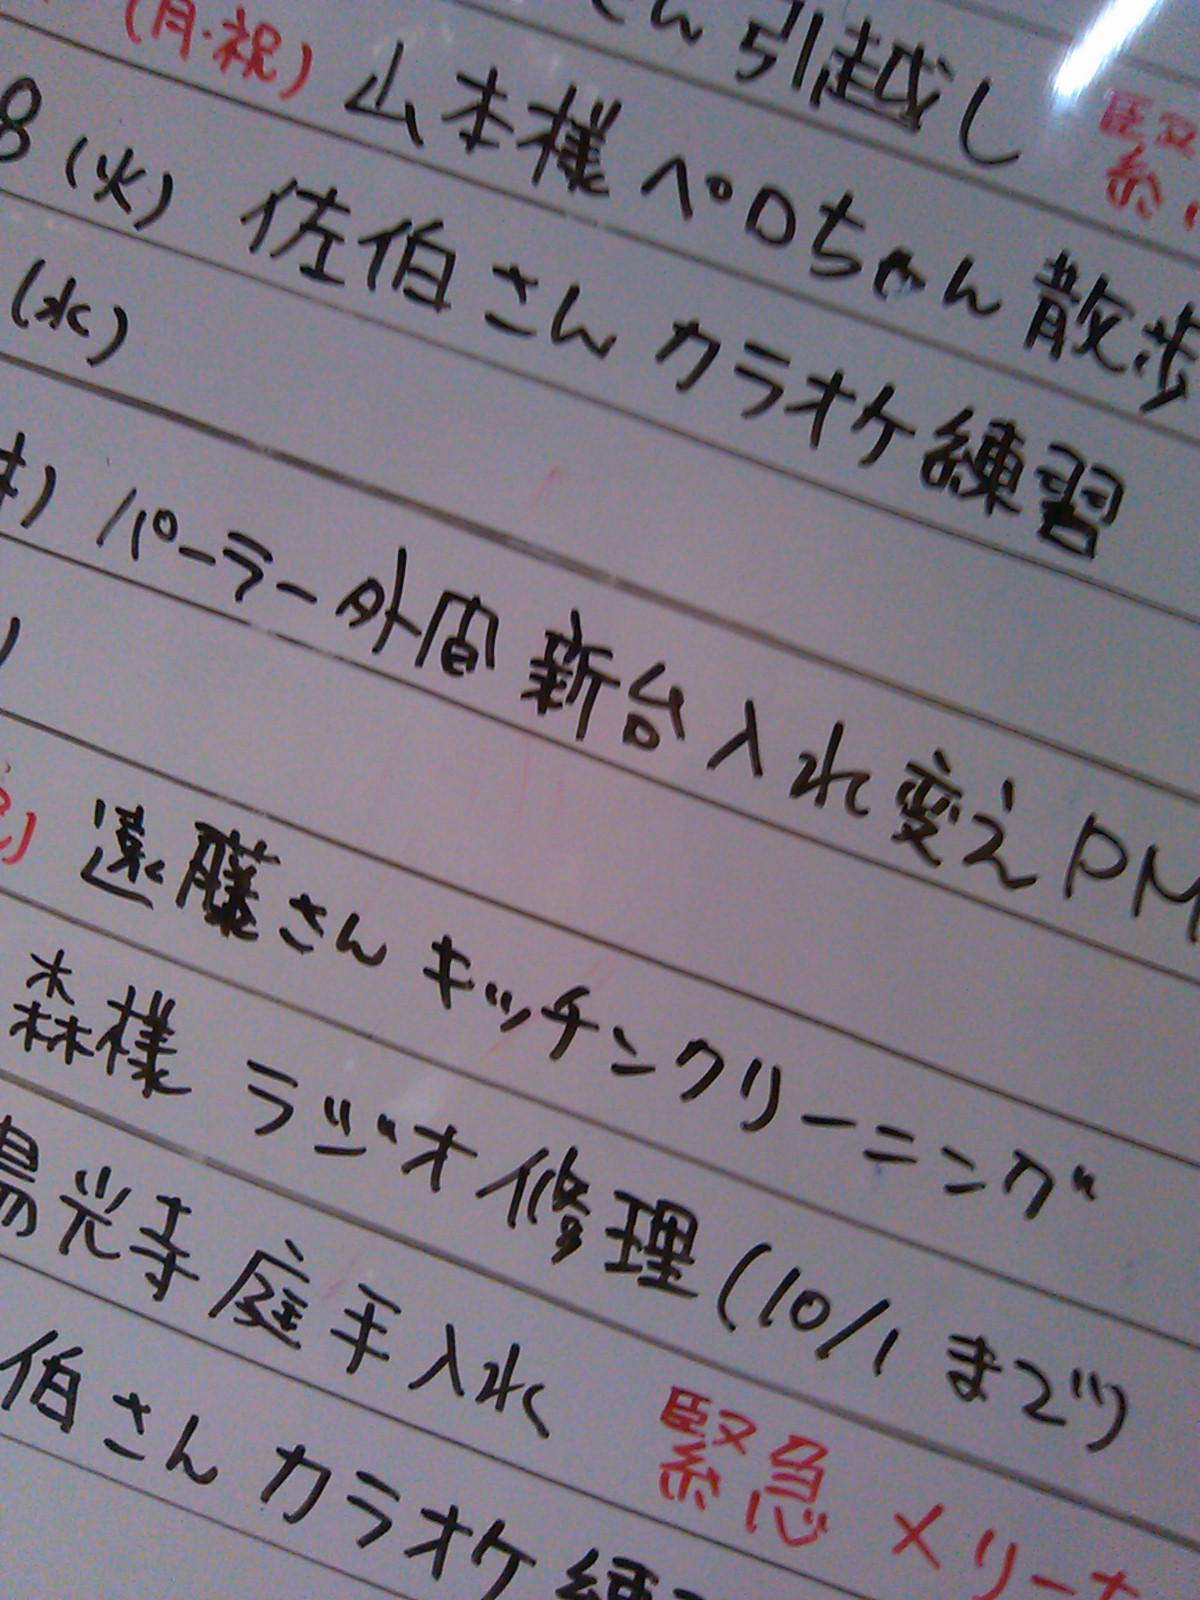 さん 引越し 緊
(月・祝) 山本様 ペロちゃん 散歩
8 (火) 佐伯さん カラオケ練習
(水)
木) パーラー外間 新台入れ変え PM
)
祝) 遠藤さん キッチンクリーニング
森様 ラジオ修理 (10/1まで)
陽光寺 庭手入れ
伯さん カラオケ練 緊急 メリー